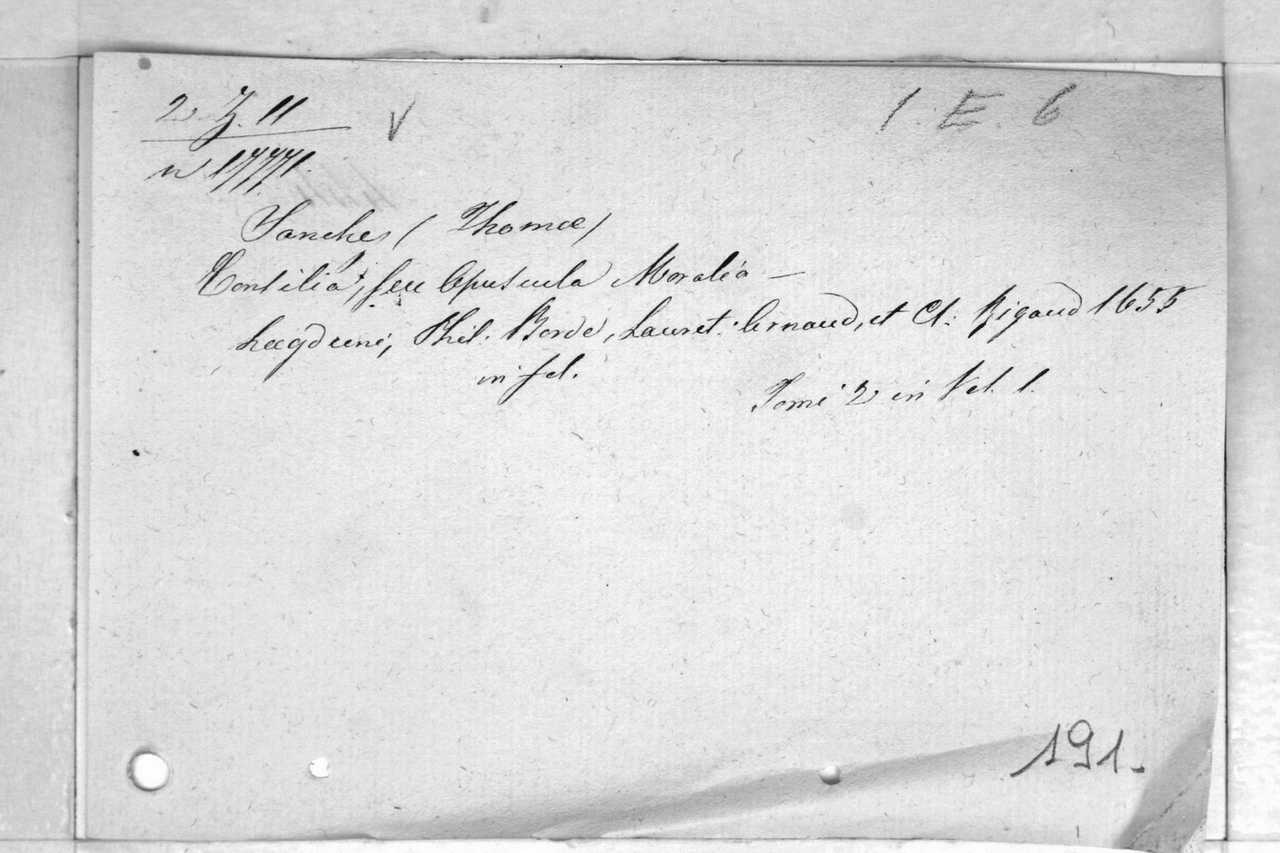 2. Z. 11
V
1. E. 6
n 17771.
Sanches (Thomæ)
Consilia, seu Opuscula Moralia —
Lugduni, Phil. Borde, Lauret. Arnaud, et Cl. Rigaud 1655
in fol.
Tomi 2 in Vol. 1.
191.